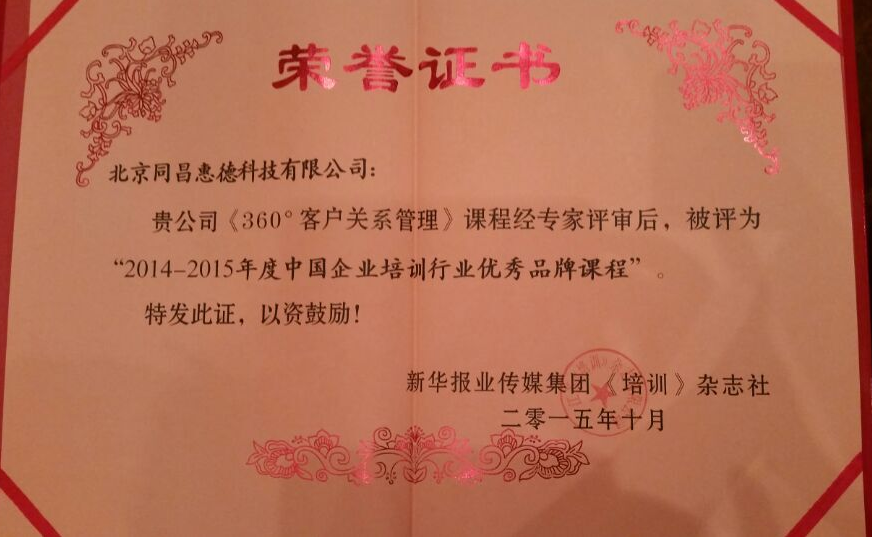 荣誉证书
北京同昌惠德科技有限公司：
贵公司《360°客户关系管理》课程经专家评审后，被评为
“2014-2015年度中国企业培训行业优秀品牌课程”。
特发此证，以资鼓励！
新华报业传媒集团《培训》杂志社
二零一五年十月